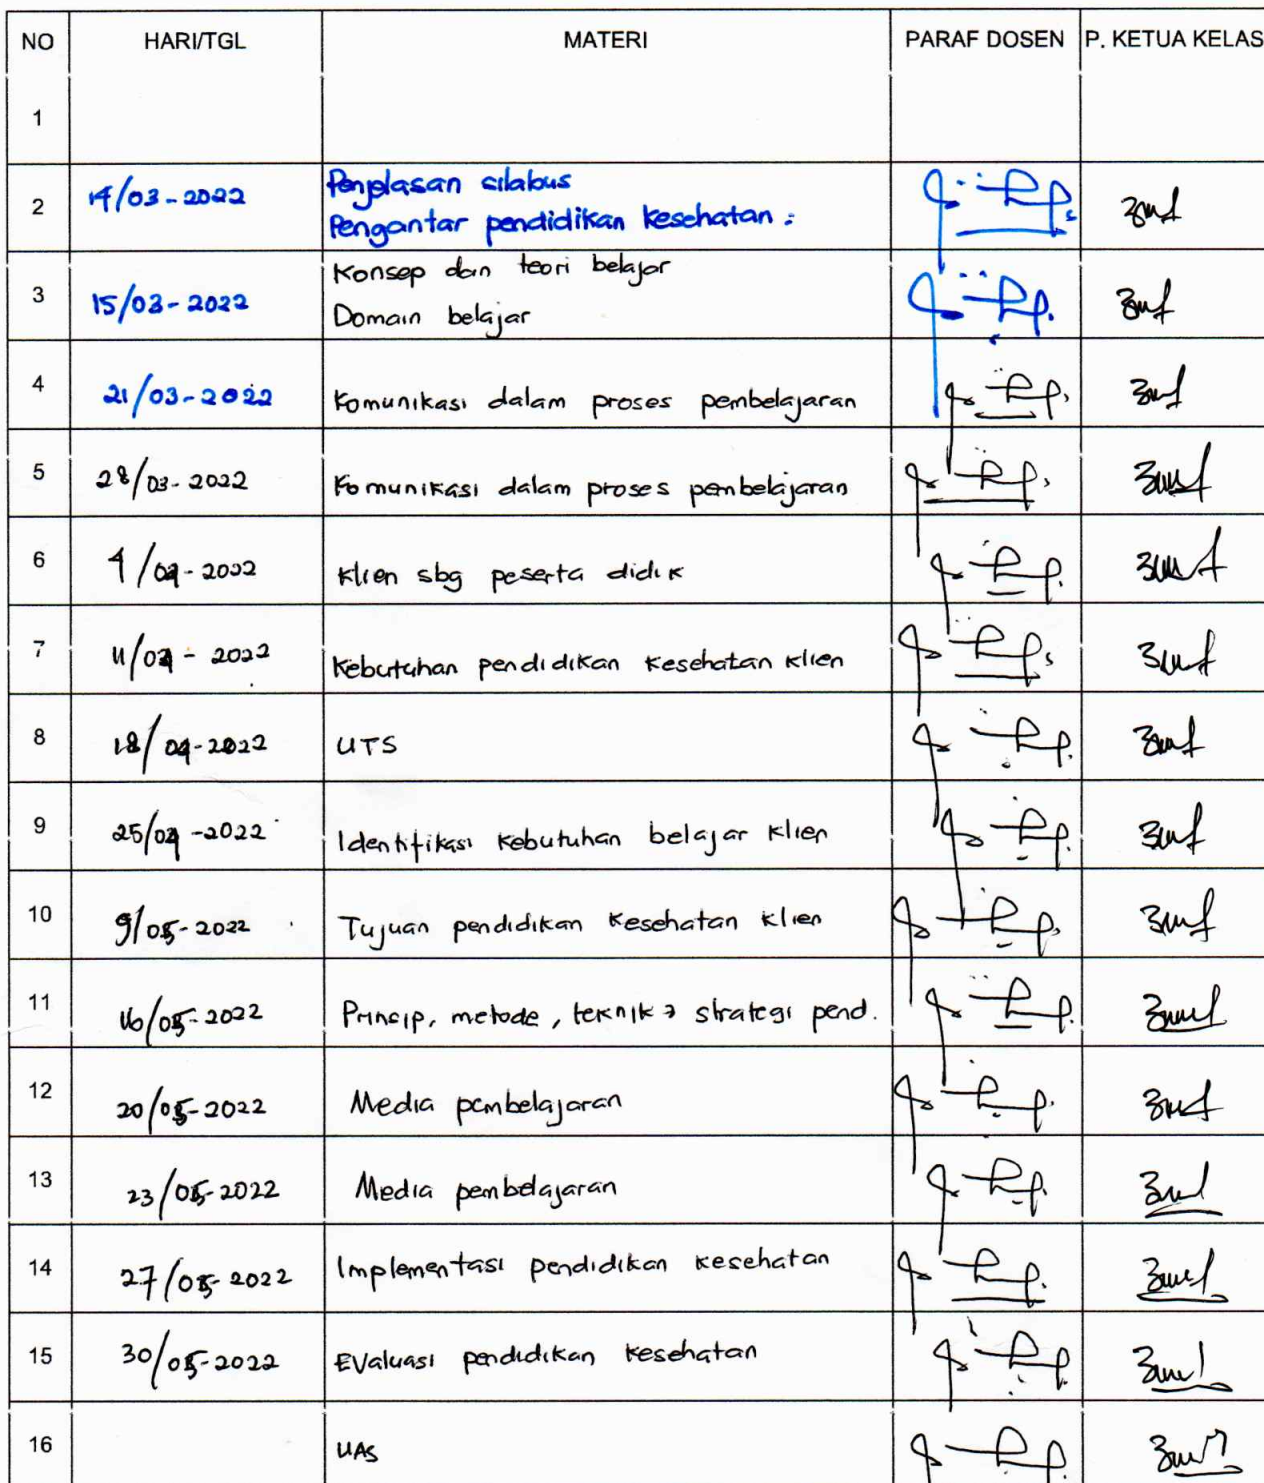 NO HARI/TGL MATERI PARAF DOSEN P. KETUA KELAS
1
2 14/03-2022 Penjelasan silabus
Pengantar pendidikan kesehatan :
3 15/03-2022 Konsep dan teori belajar
Domain belajar
4 21/03-2022 Komunikasi dalam proses pembelajaran
5 28/03-2022 Komunikasi dalam proses pembelajaran
6 4/04-2022 Klien sbg peserta didik
7 11/04-2022 Kebutuhan pendidikan kesehatan klien
8 18/04-2022 UTS
9 25/04-2022 Identifikasi kebutuhan belajar klien
10 9/05-2022 Tujuan pendidikan kesehatan klien
11 16/05-2022 Prinsip, metode, teknik strategi pend.
12 20/05-2022 Media pembelajaran
13 23/05-2022 Media pembelajaran
14 27/05-2022 Implementasi pendidikan kesehatan
15 30/05-2022 Evaluasi pendidikan kesehatan
16 UAS